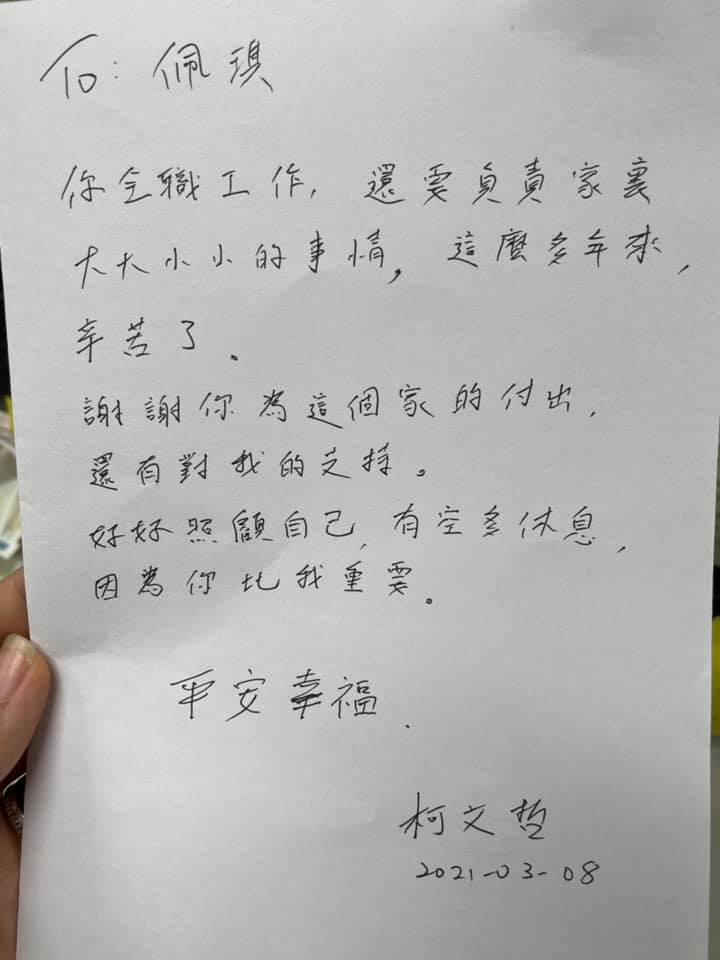 To: 佩琪
你全職工作, 還要負責家裏
大大小小的事情, 這麼多年來,
辛苦了。
謝謝你為這個家的付出,
還有對我的支持。
好好照顧自己, 有空多休息,
因為你比我重要。
平安幸福.
柯文哲
2021-03-08